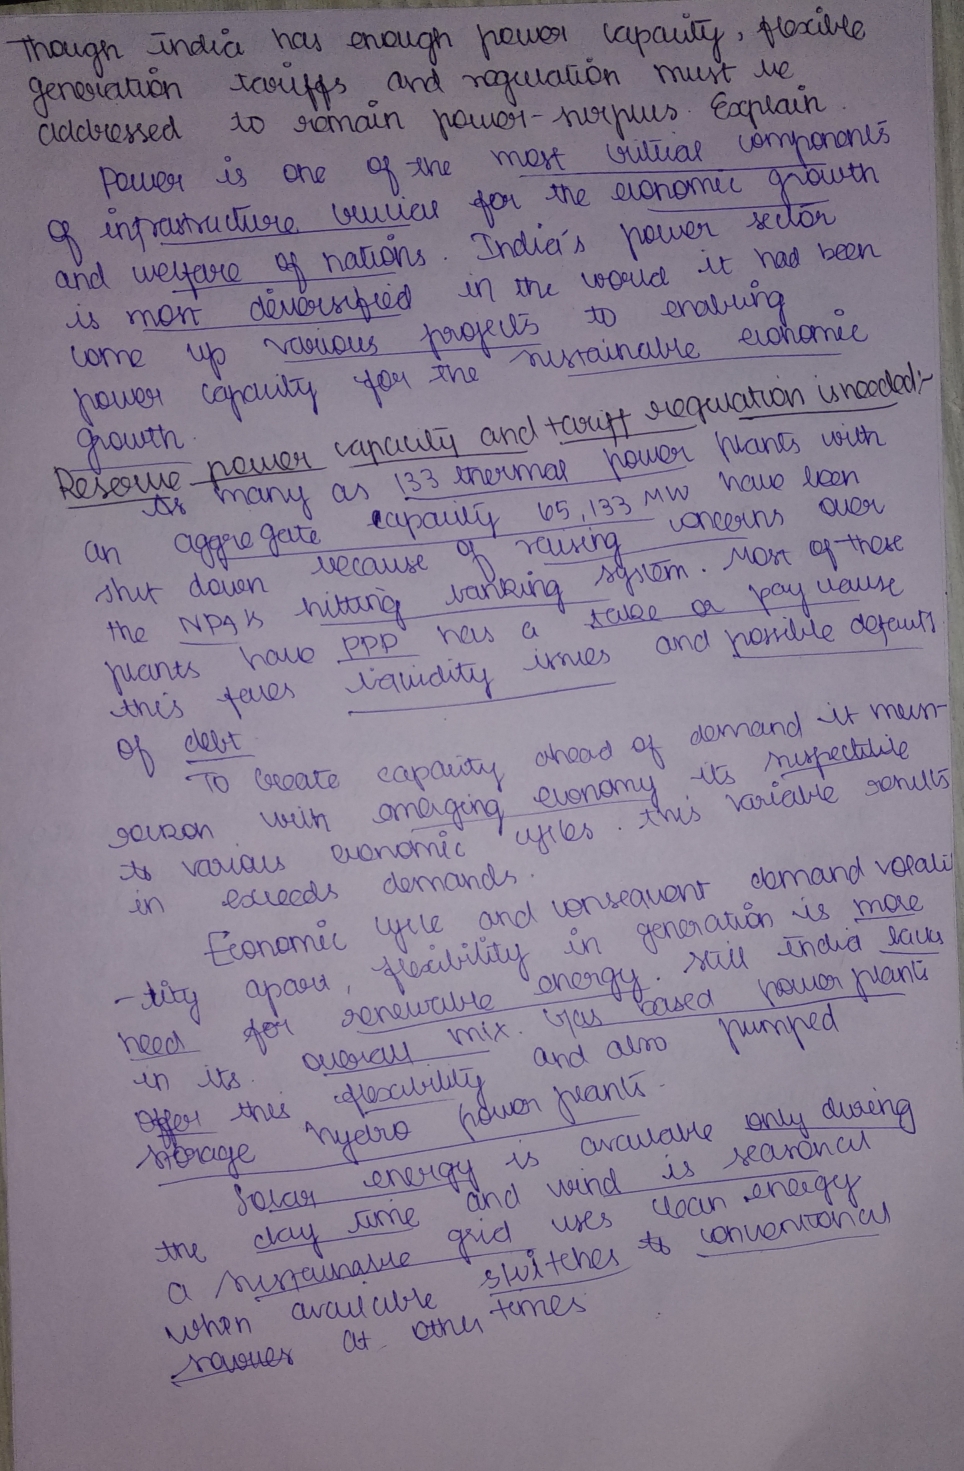 Though india has enough power capacity, flexible
generation tariffs and regulation must be
addressed to remain power-surplus. Explain.
Power is one of the most critical components
of infrastructure crucial for the economic growth
and welfare of nations. India's power sector
is most diversified in the world it had been
come up various projects to enabling
power capacity for the sustainable economic
growth.
Reserve power capacity and tariff regulation is needed:-
As many as 133 thermal power plants with
an aggregate capacity 65,133 MW have been
shut down because of raising concerns over
the NPA's hitting banking system. Most of these
plants have PPP has a take or pay clause
this faces liquidity issues and possible defaults
of debt
To create capacity ahead of demand it must
with emerging economy its suspectible
to various economic cycles. this variable results
in exceeds demands.
Economic cycle and consequent demand volati
-lity apart, flexibility in generation is more
need for renewable energy. Still india lacks
in its overall mix. Gas based power plants
offer this flexibility and also pumped
storage hydro power plants.
Solar energy is available only during
the day time and wind is seasonal
a sustainable grid uses clean energy
when available switches to conventional
sources at other times